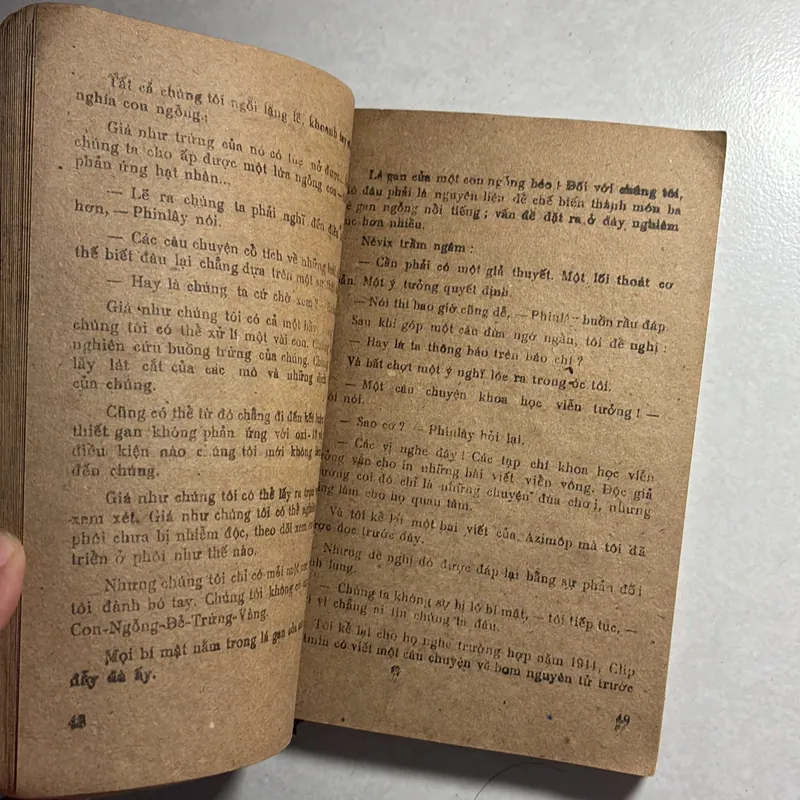 Tất cả chúng tôi ngồi lặng lẽ, khoanh tay
nghĩa con ngỗng.
Giá như trứng của nó có
chúng ta cho ấp được một lứa ngỗng con
phản ứng hạt nhân...
— Lẽ ra chúng ta phải nghĩ đến
hơn, — Phinlây nói.
— Các câu chuyện cổ tích về những
thể biết đâu lại chẳng dựa trên một sự
— Hay là chúng ta cứ chờ xem? —
Giá như chúng tôi có cả một bầy
chúng tôi có thể xử lí một vài con. Chúng
nghiên cứu buồng trứng của chúng. Chúng
lấy lát cắt của các mô và những
của chúng.
Cũng có thể từ đó chẳng đi đến kết
thiết gan không phản ứng với oxi-18
điều kiện nào chúng tôi mới không
đến chúng.
Giá như chúng tôi có thể lấy ra
xem xét. Giá như chúng tôi có thể
phôi chưa bị nhiễm độc, theo dõi xem
triển ở phôi như thế nào.
Nhưng chúng tôi chỉ có mỗi một
tôi đành bó tay. Chúng tôi không
Con-Ngỗng-Đẻ-Trứng-Vàng.
Mọi bí mật nằm trong lá gan của
đẫy đà ấy.
48
Lá gan của một con ngỗng béo! Đối với chúng tôi,
đó đâu phải là nguyên liệu để chế biến thành món ba
tê gan ngỗng nổi tiếng; vấn đề đặt ra ở đây nghiêm
túc hơn nhiều.
Nêvix trầm ngâm:
— Cần phải có một giả thuyết. Một lối thoát cơ
bản. Một ý tưởng quyết định.
— Nói thì bao giờ cũng dễ, — Phinlây buồn rầu đáp
Sau khi góp một câu đùa ngớ ngẩn, tôi đề nghị:
— Hay là ta thông báo trên báo chí?
Và bất chợt một ý nghĩ lóe ra trong óc tôi.
— Một câu chuyện khoa học viễn tưởng! —
tôi nói.
— Sao cơ? — Phinlây hỏi lại.
— Các vị nghe đây! Các tạp chí khoa học viễn
tưởng vẫn cho in những bài viết viển vông. Độc giả
thường coi đó chỉ là những chuyện đùa chơi, nhưng
cũng làm cho họ quan tâm.
Và tôi kể lại một bài viết của Azimôp mà tôi đã
được đọc trước đây.
Nhưng đề nghị đó được đáp lại bằng sự phản đối
lạnh lùng.
— Chúng ta không sợ bị lộ bí mật, — tôi tiếp tục, —
vì chẳng ai tin chúng ta đâu.
Tôi kể lại cho họ nghe trường hợp năm 1944, Clip
có viết một câu chuyện về bom nguyên tử trước
49